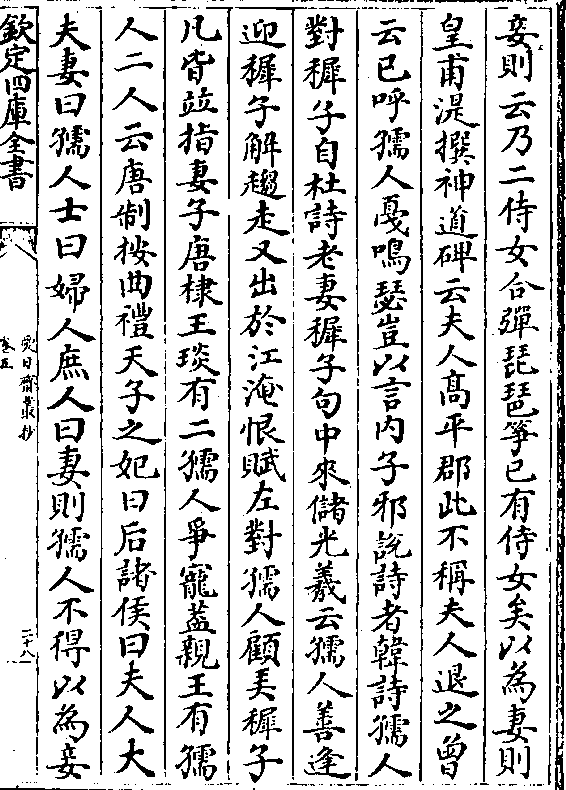 妾則云乃二侍女合彈琵琶箏已有侍女矣以為妻則
皇甫湜撰神道碑云夫人髙平郡此不稱夫人退之曾
云已呼孺人戞鳴瑟豈以言内子邪說詩者韓詩孺人
對穉子自杜詩老妻穉子句中來儲光羲云孺人善逢
迎穉子解趨走又出於江淹恨賦左對孺人顧弄穉子
凡皆竝指妻子唐棣王琰有二孺人爭寵葢親王有孺
人二人云唐制按曲禮天子之妃曰后諸侯曰夫人大
夫妻曰孺人士曰婦人庶人曰妻則孺人不得以為妾
欽定四庫全書
愛日齋叢抄
卷五
二十八